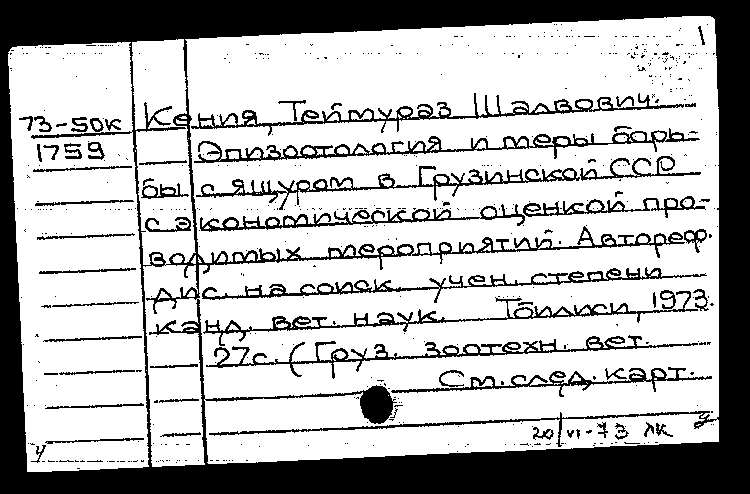 1
73-50к Кения, Теймураз Шалвович.
1759 Эпизоотология и меры борь-
бы с ящуром в Грузинской ССР
с экономической оценкой про-
водимых мероприятий. Автореф.
дис. на соиск. учен. степени
канд. вет. наук. Тбилиси, 1973.
27с. (Груз. зоотехн. вет.
См. след. карт.
20/VI-73 ЛК
ч